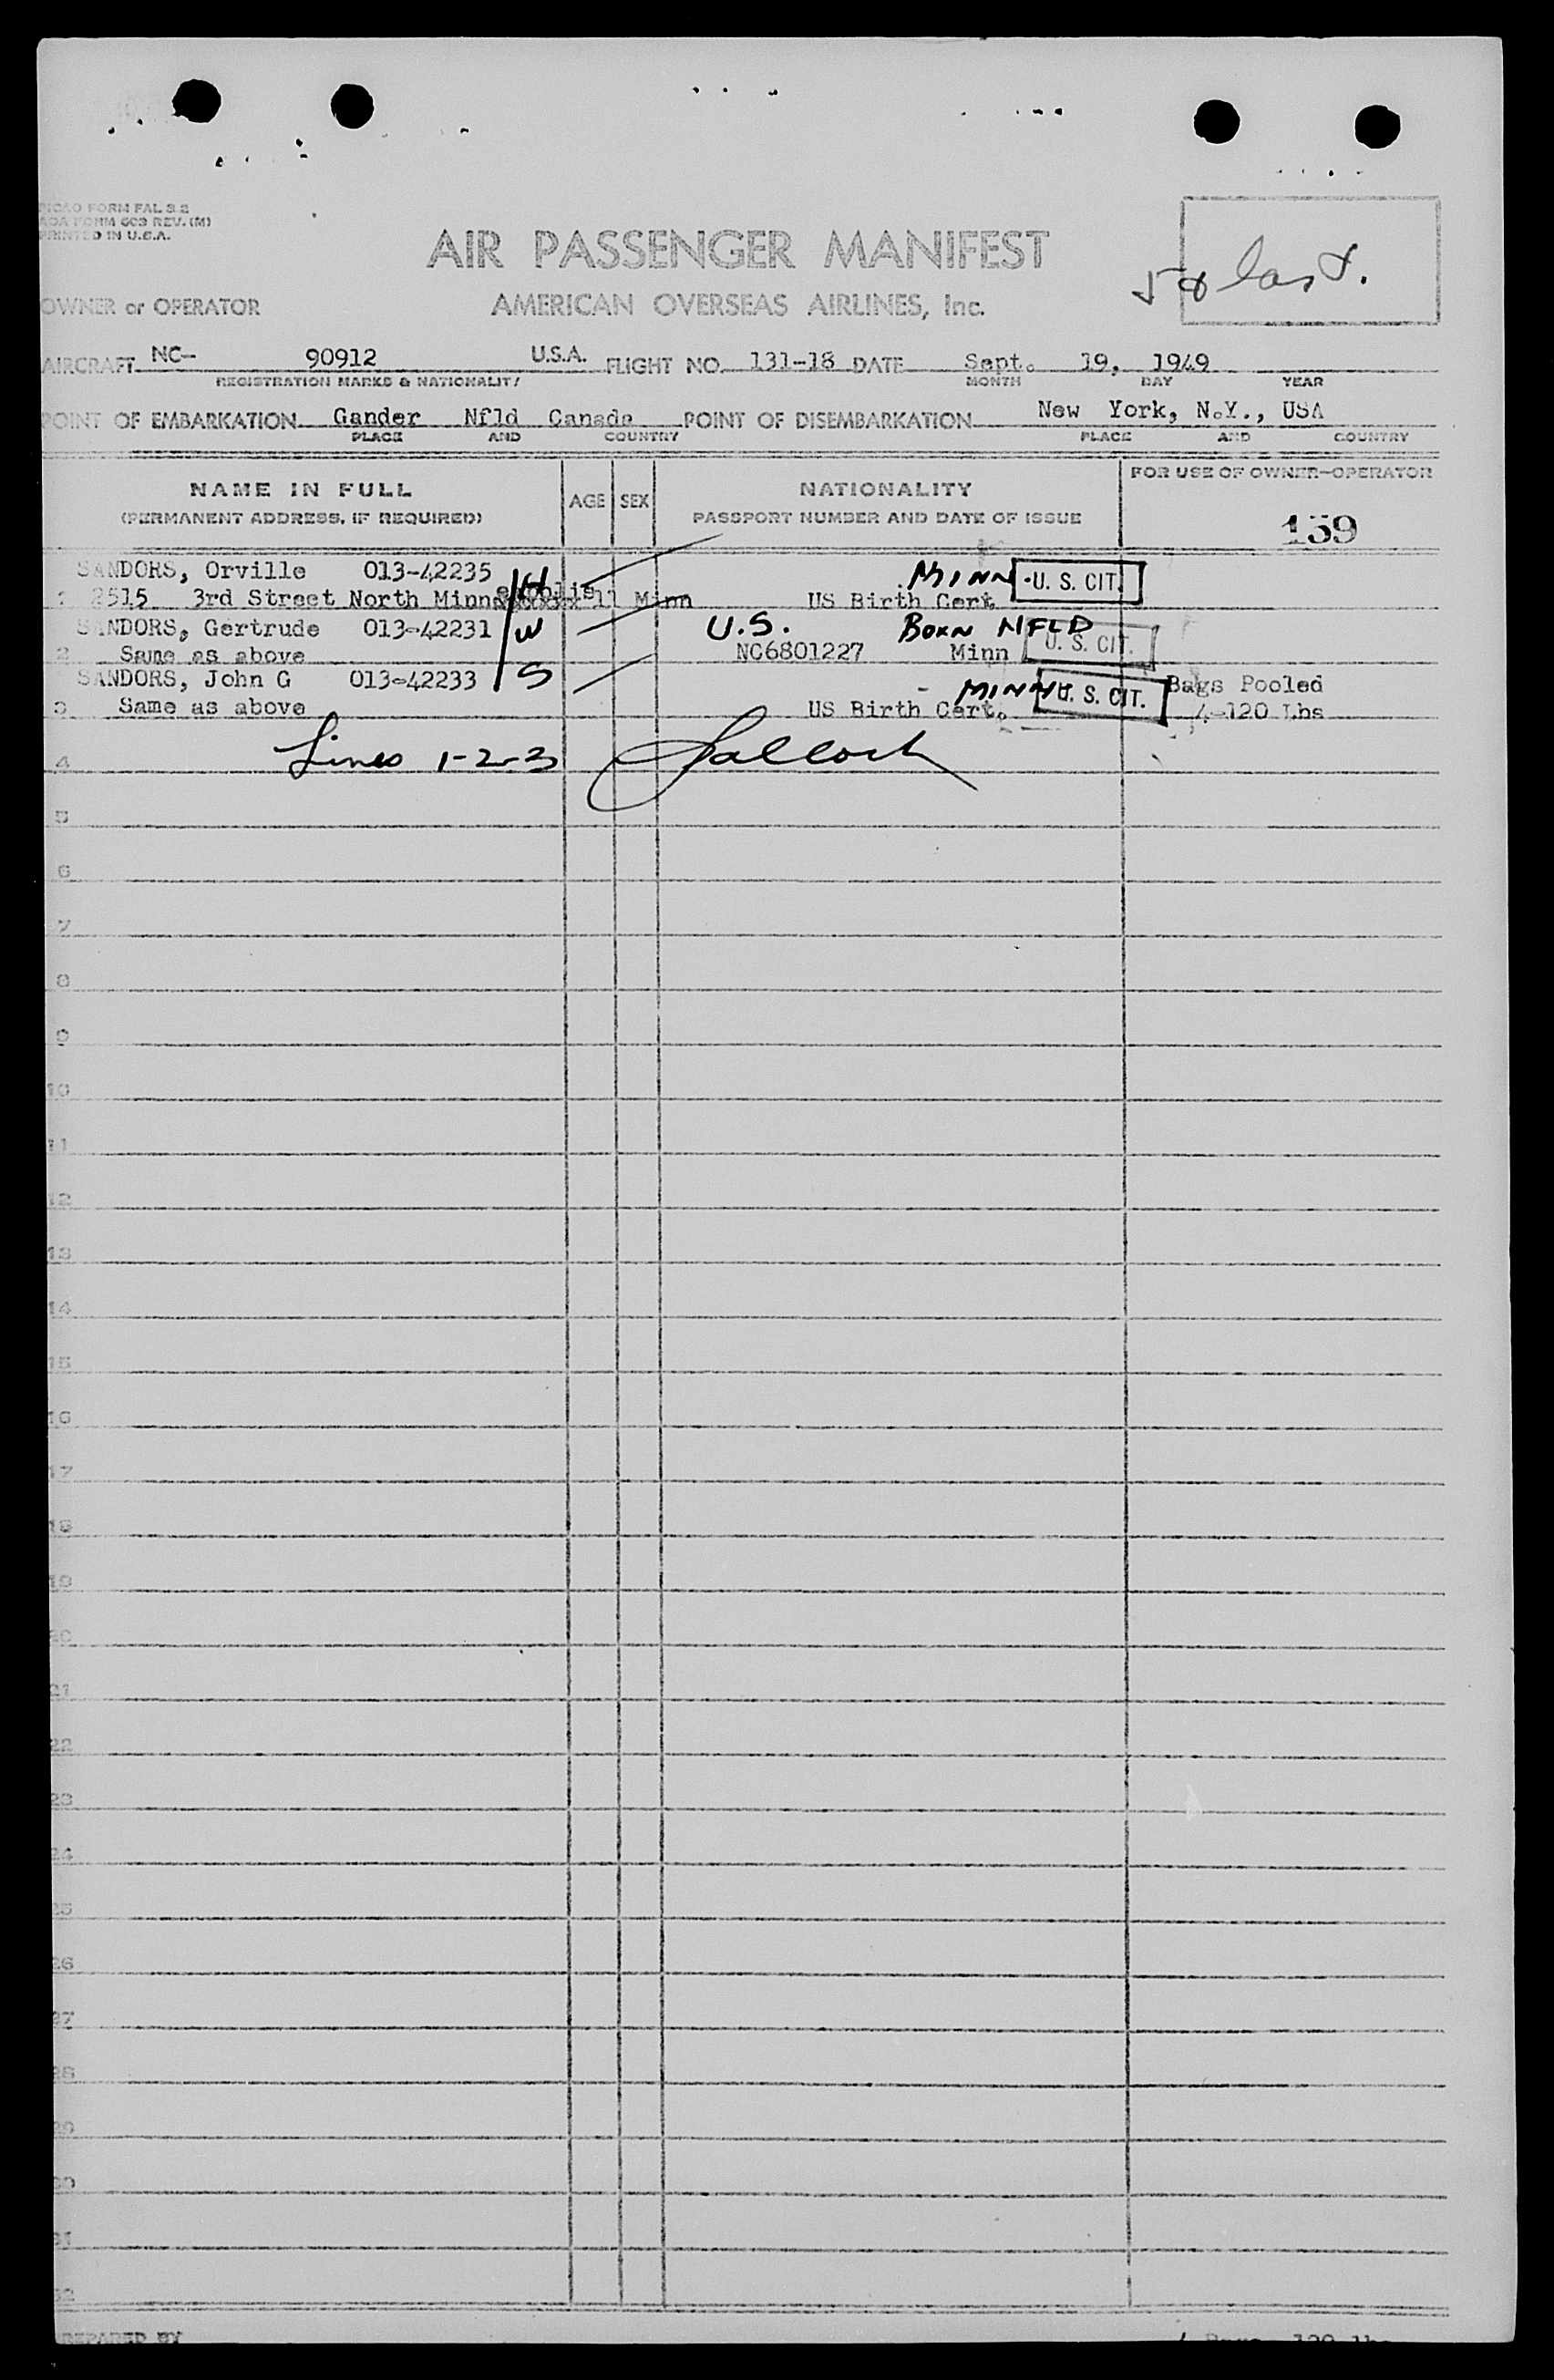 ICAO FORM FAL 3.2
AOA FORM 603 REV. (M)
PRINTED IN U.S.A.
AIR PASSENGER MANIFEST
last.
OWNER or OPERATOR AMERICAN OVERSEAS AIRLINES, Inc.
AIRCRAFT NC- 90912 U.S.A. FLIGHT NO. 131-18 DATE Sept. 19, 1949
REGISTRATION MARKS & NATIONALITY MONTH DAY YEAR
POINT OF EMBARKATION Gander Nfld Canada POINT OF DISEMBARKATION New York, N.Y., USA
PLACE AND COUNTRY PLACE AND COUNTRY
NAME IN FULL AGE SEX NATIONALITY FOR USE OF OWNER-OPERATOR
(PERMANENT ADDRESS, IF REQUIRED) PASSPORT NUMBER AND DATE OF ISSUE 159
SANDORS, Orville 013-42235 H MINN U. S. CIT.
1 2515 3rd Street North Minneapolis 11 Minn US Birth Cert
SANDORS, Gertrude 013-42231 W U.S. BORN NFLD
2 Same as above NC6801227 Minn U. S. CIT.
SANDORS, John G 013-42233 S MINN U. S. CIT. Bags Pooled
3 Same as above US Birth Cert. 4-120 Lbs
4 Lines 1-2-3
5
6
7
8
9
10
11
12
13
14
15
16
17
18
19
20
21
22
23
24
25
26
27
28
29
30
31
32
PREPARED BY